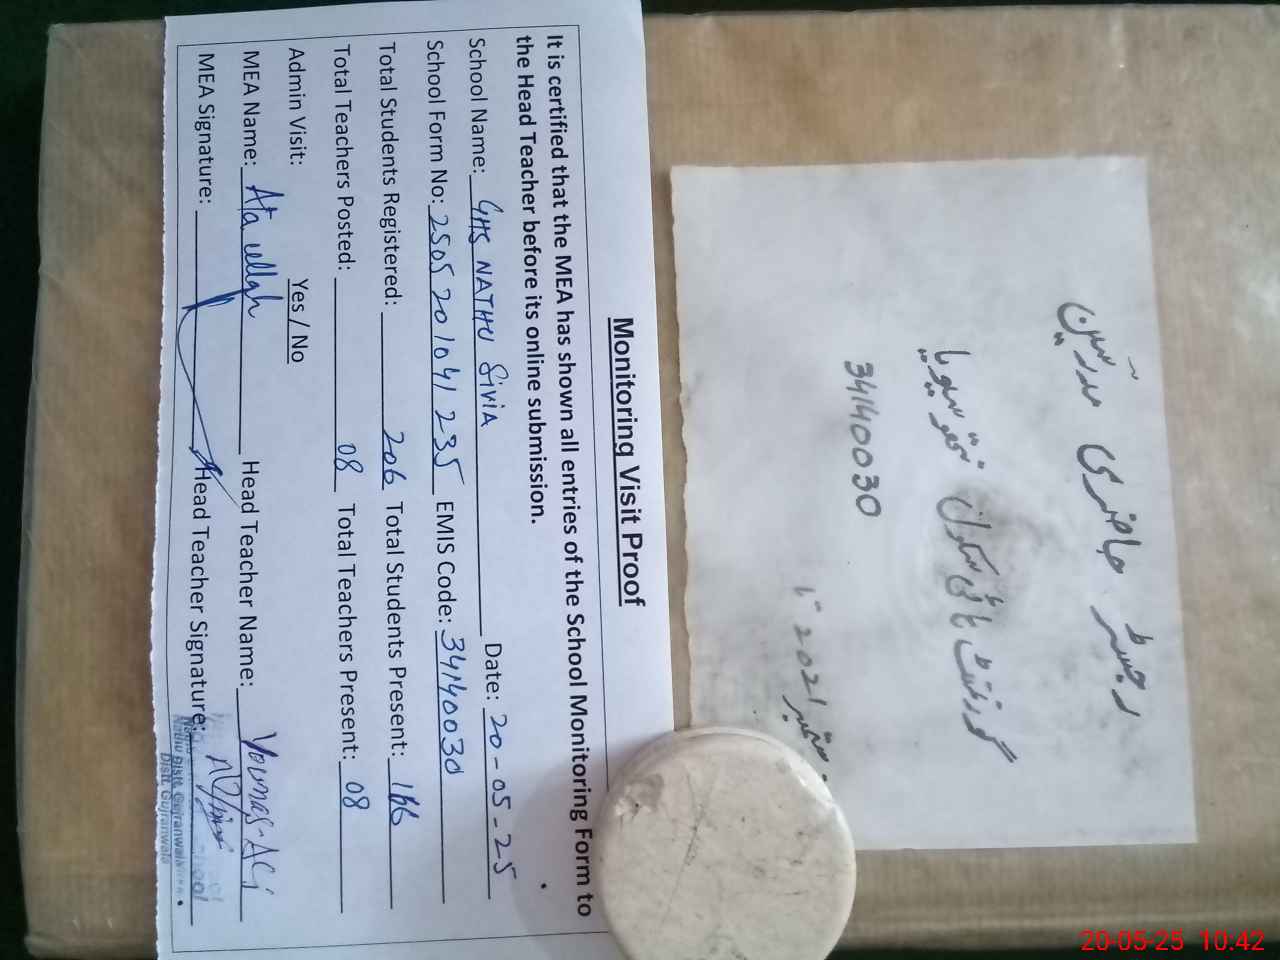 Monitoring Visit Proof
It is certified that the MEA has shown all entries of the School Monitoring Form to
the Head Teacher before its online submission.
School Name: GHS NATHU SIVIA Date: 20-05-25
School Form No: 2505201041235 EMIS Code: 34140030
Total Students Registered: 206 Total Students Present: 166
Total Teachers Posted: 08 Total Teachers Present: 08
Admin Visit: Yes / No
MEA Name: Ata ullah Head Teacher Name: Younas-Ali
MEA Signature: Head Teacher Signature:
Nathu Distt. Gujranwala
Distt. Gujranwala
رجسٹر حاضری مدرسین
گورنمنٹ ہائی سکول نتھو سیویا
34140030
ستمبر 2021
20-05-25 10:42